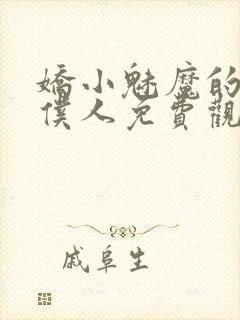 嬌小魅魔的
僕人免費觀
戚阜生